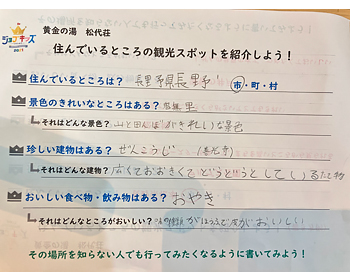 黄金の湯 松代荘
ジョブキッズ
住んでいるところの観光スポットを紹介しよう！
住んでいるところは？ 長野県長野 市・町・村
景色のきれいなところはある？
それはどんな景色？ 山と田んぼがきれいな景色
珍しい建物はある？ ぜんこうじ (善光寺)
それはどんな建物？ 広くておおきくてどうどうとしているたて物
おいしい食べ物・飲み物はある？ おやき
それはどんなところがおいしい？ がほうふで皮がおいしい
その場所を知らない人でも行ってみたくなるように書いてみよう！